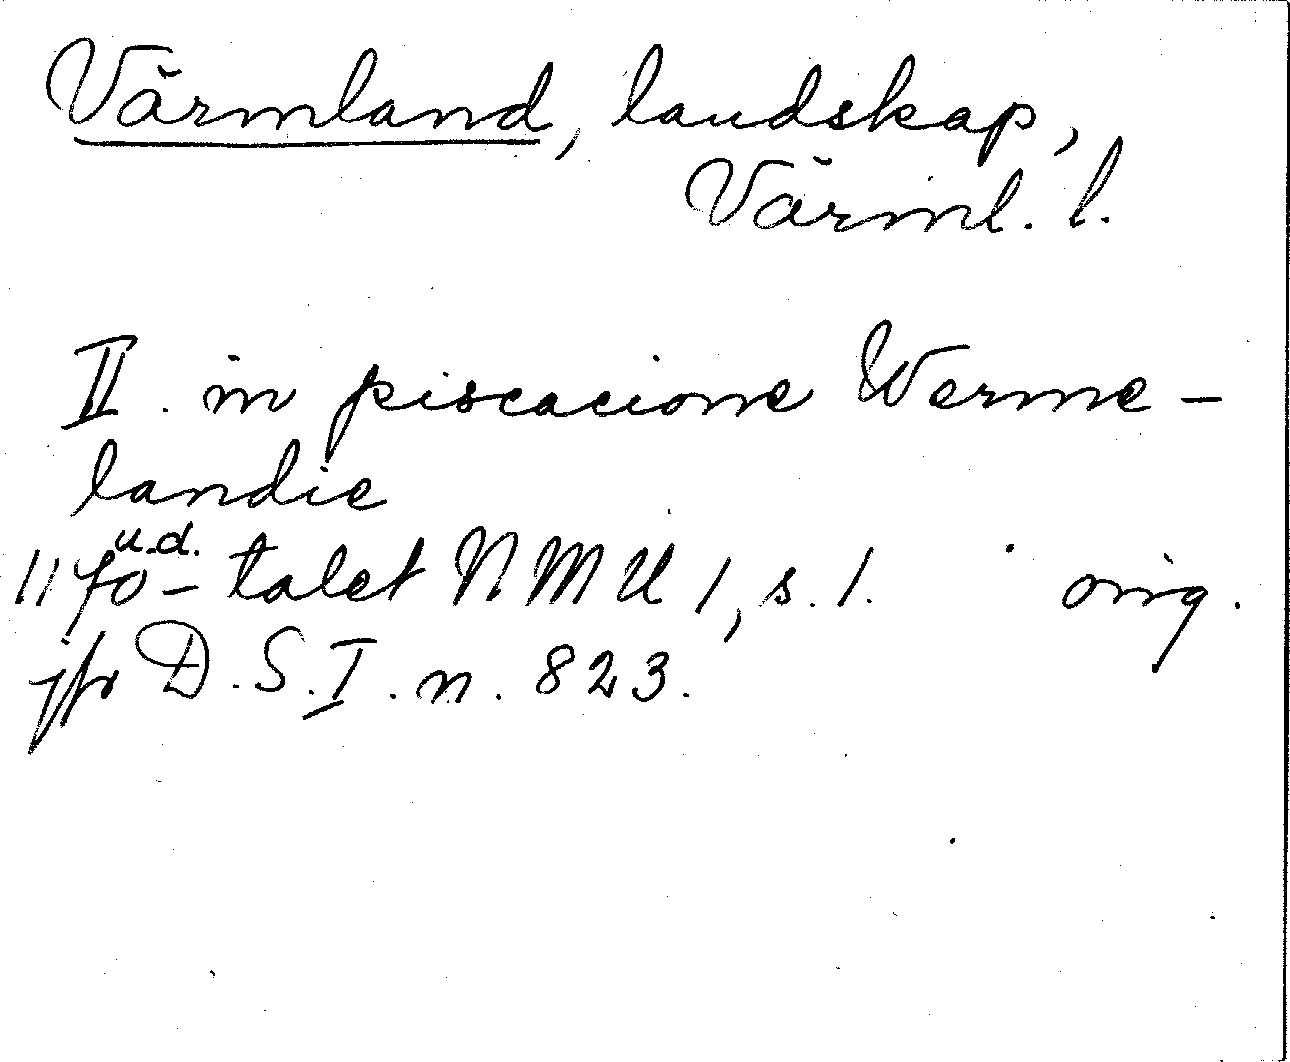 Värmland, landskap,
Värml. l.
II. in piscacione Werme-
landie
u.d.
1170-talet NMU 1, s. 1. orig.
jfr D.S.I. n. 823.